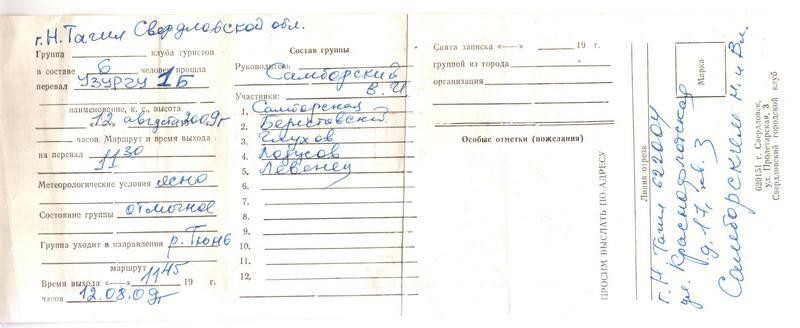 г. Н. Тагил Свердловской обл.
Группа клуба туристов
в составе 6 человек прошла
перевал УЗУРГУ 1Б
наименование, к. с., высота
12 августа 2009 г
часов. Маршрут и время выхода
на перевал 11 30
Метеорологические условия ясно
Состояние группы отличное
Группа уходит в направлении р. Тюнь
маршрут
Время выхода «—» 11 45 19 г.
часов 12.08.09г
Состав группы
Руководитель Самборский
В. И
Участники:
1. Самборская
2. Берестовский
3. Глухов
4. Лобусов
5. Левенец
6.
7.
8.
9.
10.
11.
12.
Снята записка «—» 19 г.
группой из города
организация
Особые отметки (пожелания)
ПРОСИМ ВЫСЛАТЬ ПО АДРЕСУ
Линия отреза
Марка
г. Н Тагил 622004
ул. Краснофлотская
д. 17, кв. 3
Самборским Н. и Вл.
620151 г. Свердловск,
ул. Пролетарская, 3
Свердловский городской клуб
туристов